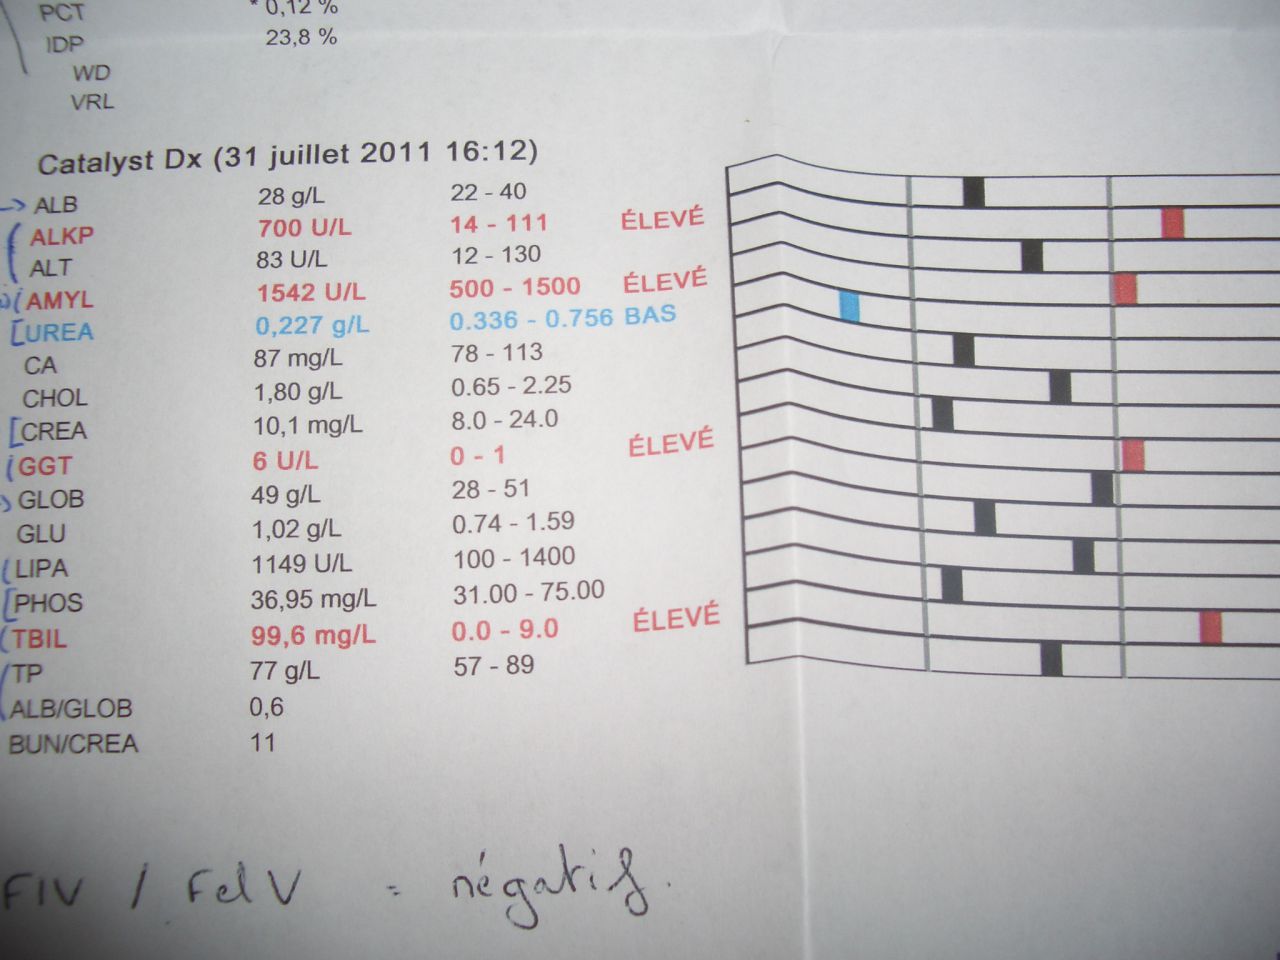 PCT * 0,12 %
IDP 23,8 %
WD
VRL
Catalyst Dx (31 juillet 2011 16:12)
ALB 28 g/L 22 - 40
ALKP 700 U/L 14 - 111 ÉLEVÉ
ALT 83 U/L 12 - 130
AMYL 1542 U/L 500 - 1500 ÉLEVÉ
UREA 0,227 g/L 0.336 - 0.756 BAS
CA 87 mg/L 78 - 113
CHOL 1,80 g/L 0.65 - 2.25
CREA 10,1 mg/L 8.0 - 24.0
GGT 6 U/L 0 - 1 ÉLEVÉ
GLOB 49 g/L 28 - 51
GLU 1,02 g/L 0.74 - 1.59
LIPA 1149 U/L 100 - 1400
PHOS 36,95 mg/L 31.00 - 75.00
TBIL 99,6 mg/L 0.0 - 9.0 ÉLEVÉ
TP 77 g/L 57 - 89
ALB/GLOB 0,6
BUN/CREA 11
FIV / FelV = négatif.